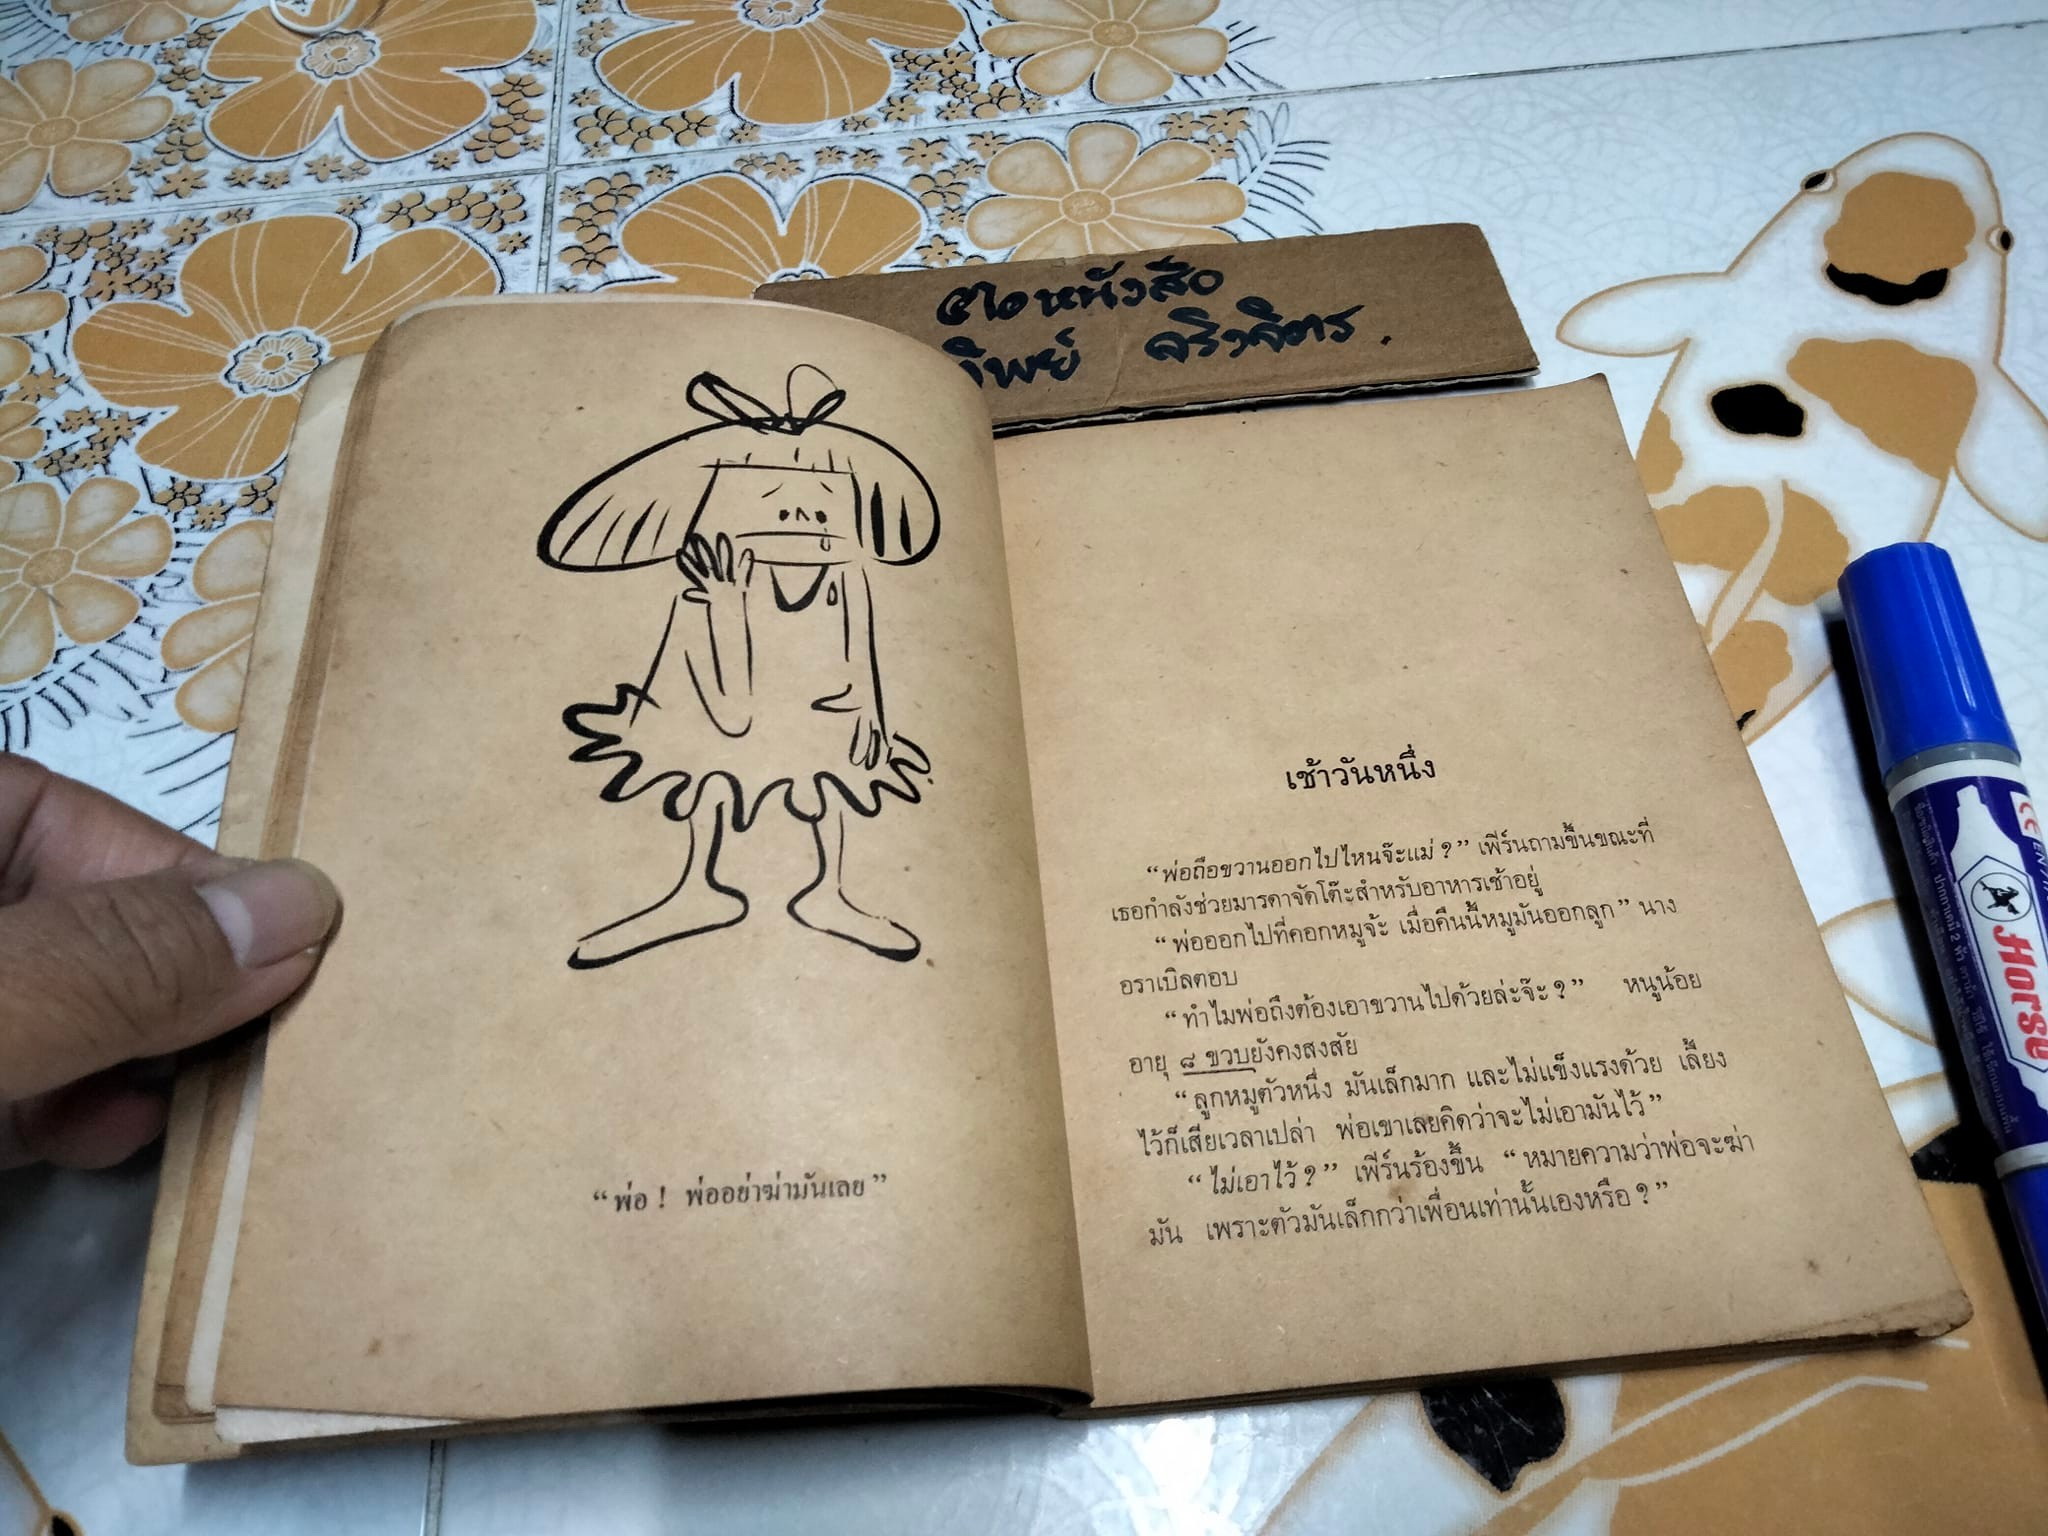 ขอหนังสือ
ทิพย์ จริงจิตร.
“พ่อ ! พ่ออย่าฆ่ามันเลย”
เช้าวันหนึ่ง
“พ่อถือขวานออกไปไหนจ๊ะแม่ ?” เฟิร์นถามขึ้นขณะที่
เธอกำลังช่วยมารดาจัดโต๊ะสำหรับอาหารเช้าอยู่
“พ่อออกไปที่คอกหมูจ้ะ เมื่อคืนนี้หมูมันออกลูก” นาง
อราเบิลตอบ
“ทำไมพ่อถึงต้องเอาขวานไปด้วยล่ะจ๊ะ ?” หนูน้อย
อายุ ๘ ขวบยังคงสงสัย
“ลูกหมูตัวหนึ่ง มันเล็กมาก และไม่แข็งแรงด้วย เลี้ยง
ไว้ก็เสียเวลาเปล่า พ่อเขาเลยคิดว่าจะไม่เอามันไว้”
“ไม่เอาไว้ ?” เฟิร์นร้องขึ้น “หมายความว่าพ่อจะฆ่า
มัน เพราะตัวมันเล็กกว่าเพื่อนเท่านั้นเองหรือ ?”
Horse